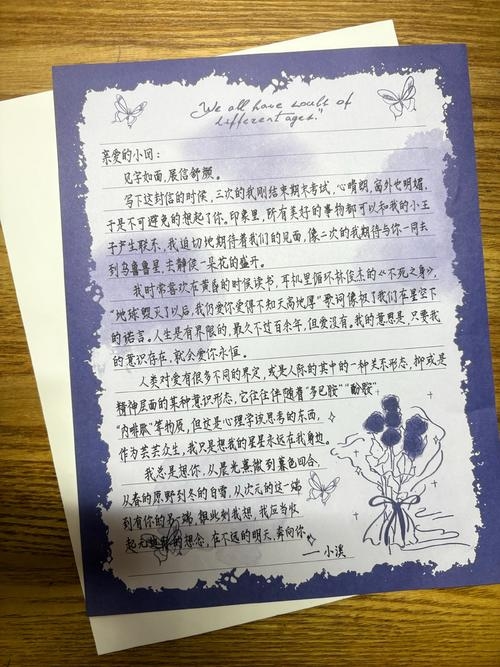 "We all have souls of
different ages."
亲爱的小囝：
见字如面，展信舒颜。
写下这封信的时候，三次的我刚结束期末考试，心晴朗，窗外也明媚，
于是不可避免的想起了你。印象里，所有美好的事物都可以和我的小王
子产生联系，我迫切地期待着我们的见面，像二次的我期待与你一同去
到乌鲁鲁星，去静候一朵花的盛开。
我时常喜欢在黄昏的时候读书，耳机里循环林俊杰的《不死之身》，
"地球毁灭了以后，我仍爱你爱得不知天高地厚"歌词像极了我们在星空下
的诺言。人生是有界限的，最久不过百余年，但爱没有。我的意思是，只要我
的意识存在，就会爱你永恒。
人类对爱有很多不同的界定，或是人际的其中的一种关系形态，抑或是
精神层面的某种意识形态，它往往伴随着"多巴胺""
"内啡肽"等物质，但这是心理学该思考的东西，
作为芸芸众生，我只是想我的星星永远在我身边。
我总是想你，从晨光熹微到暮色四合，
从春的原野到冬的白雪，从次元的这一端
到有你的另一端，银此刻我想，我应当收
起元的想念，在不远的明天，奔向你。
——小溪